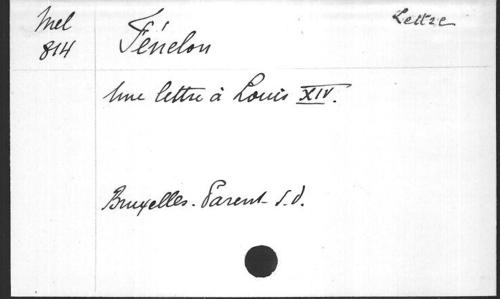 Mel
814
Fénelon
Lettre
Une lettre à Louis XIV.
Bruxelles. Parent s.d.